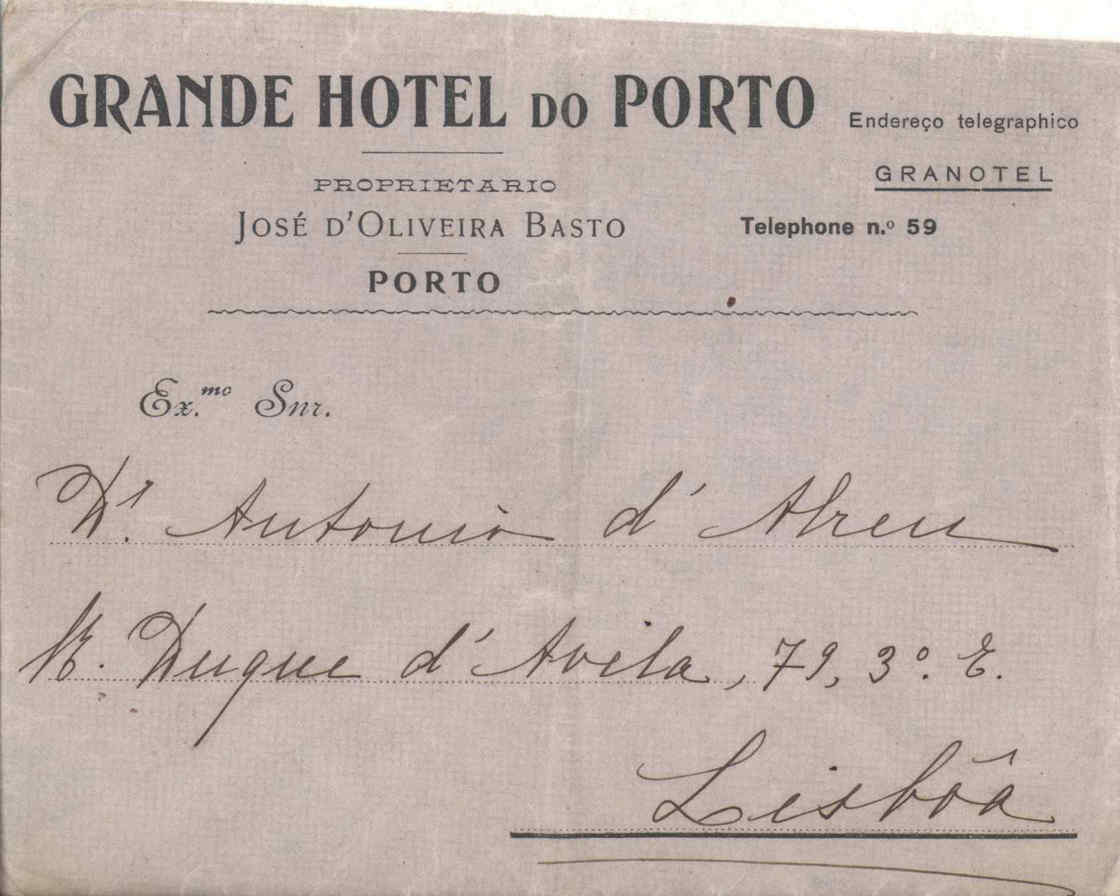 GRANDE HOTEL DO PORTO
Endereço telegraphico
GRANOTEL
PROPRIETARIO
JOSÉ D'OLIVEIRA BASTO
Telephone n.º 59
PORTO
Ex.mo Snr.
Dr. Antonio d'Abreu
R. Duque d'Avila, 79, 3º. E.
Lisbôa